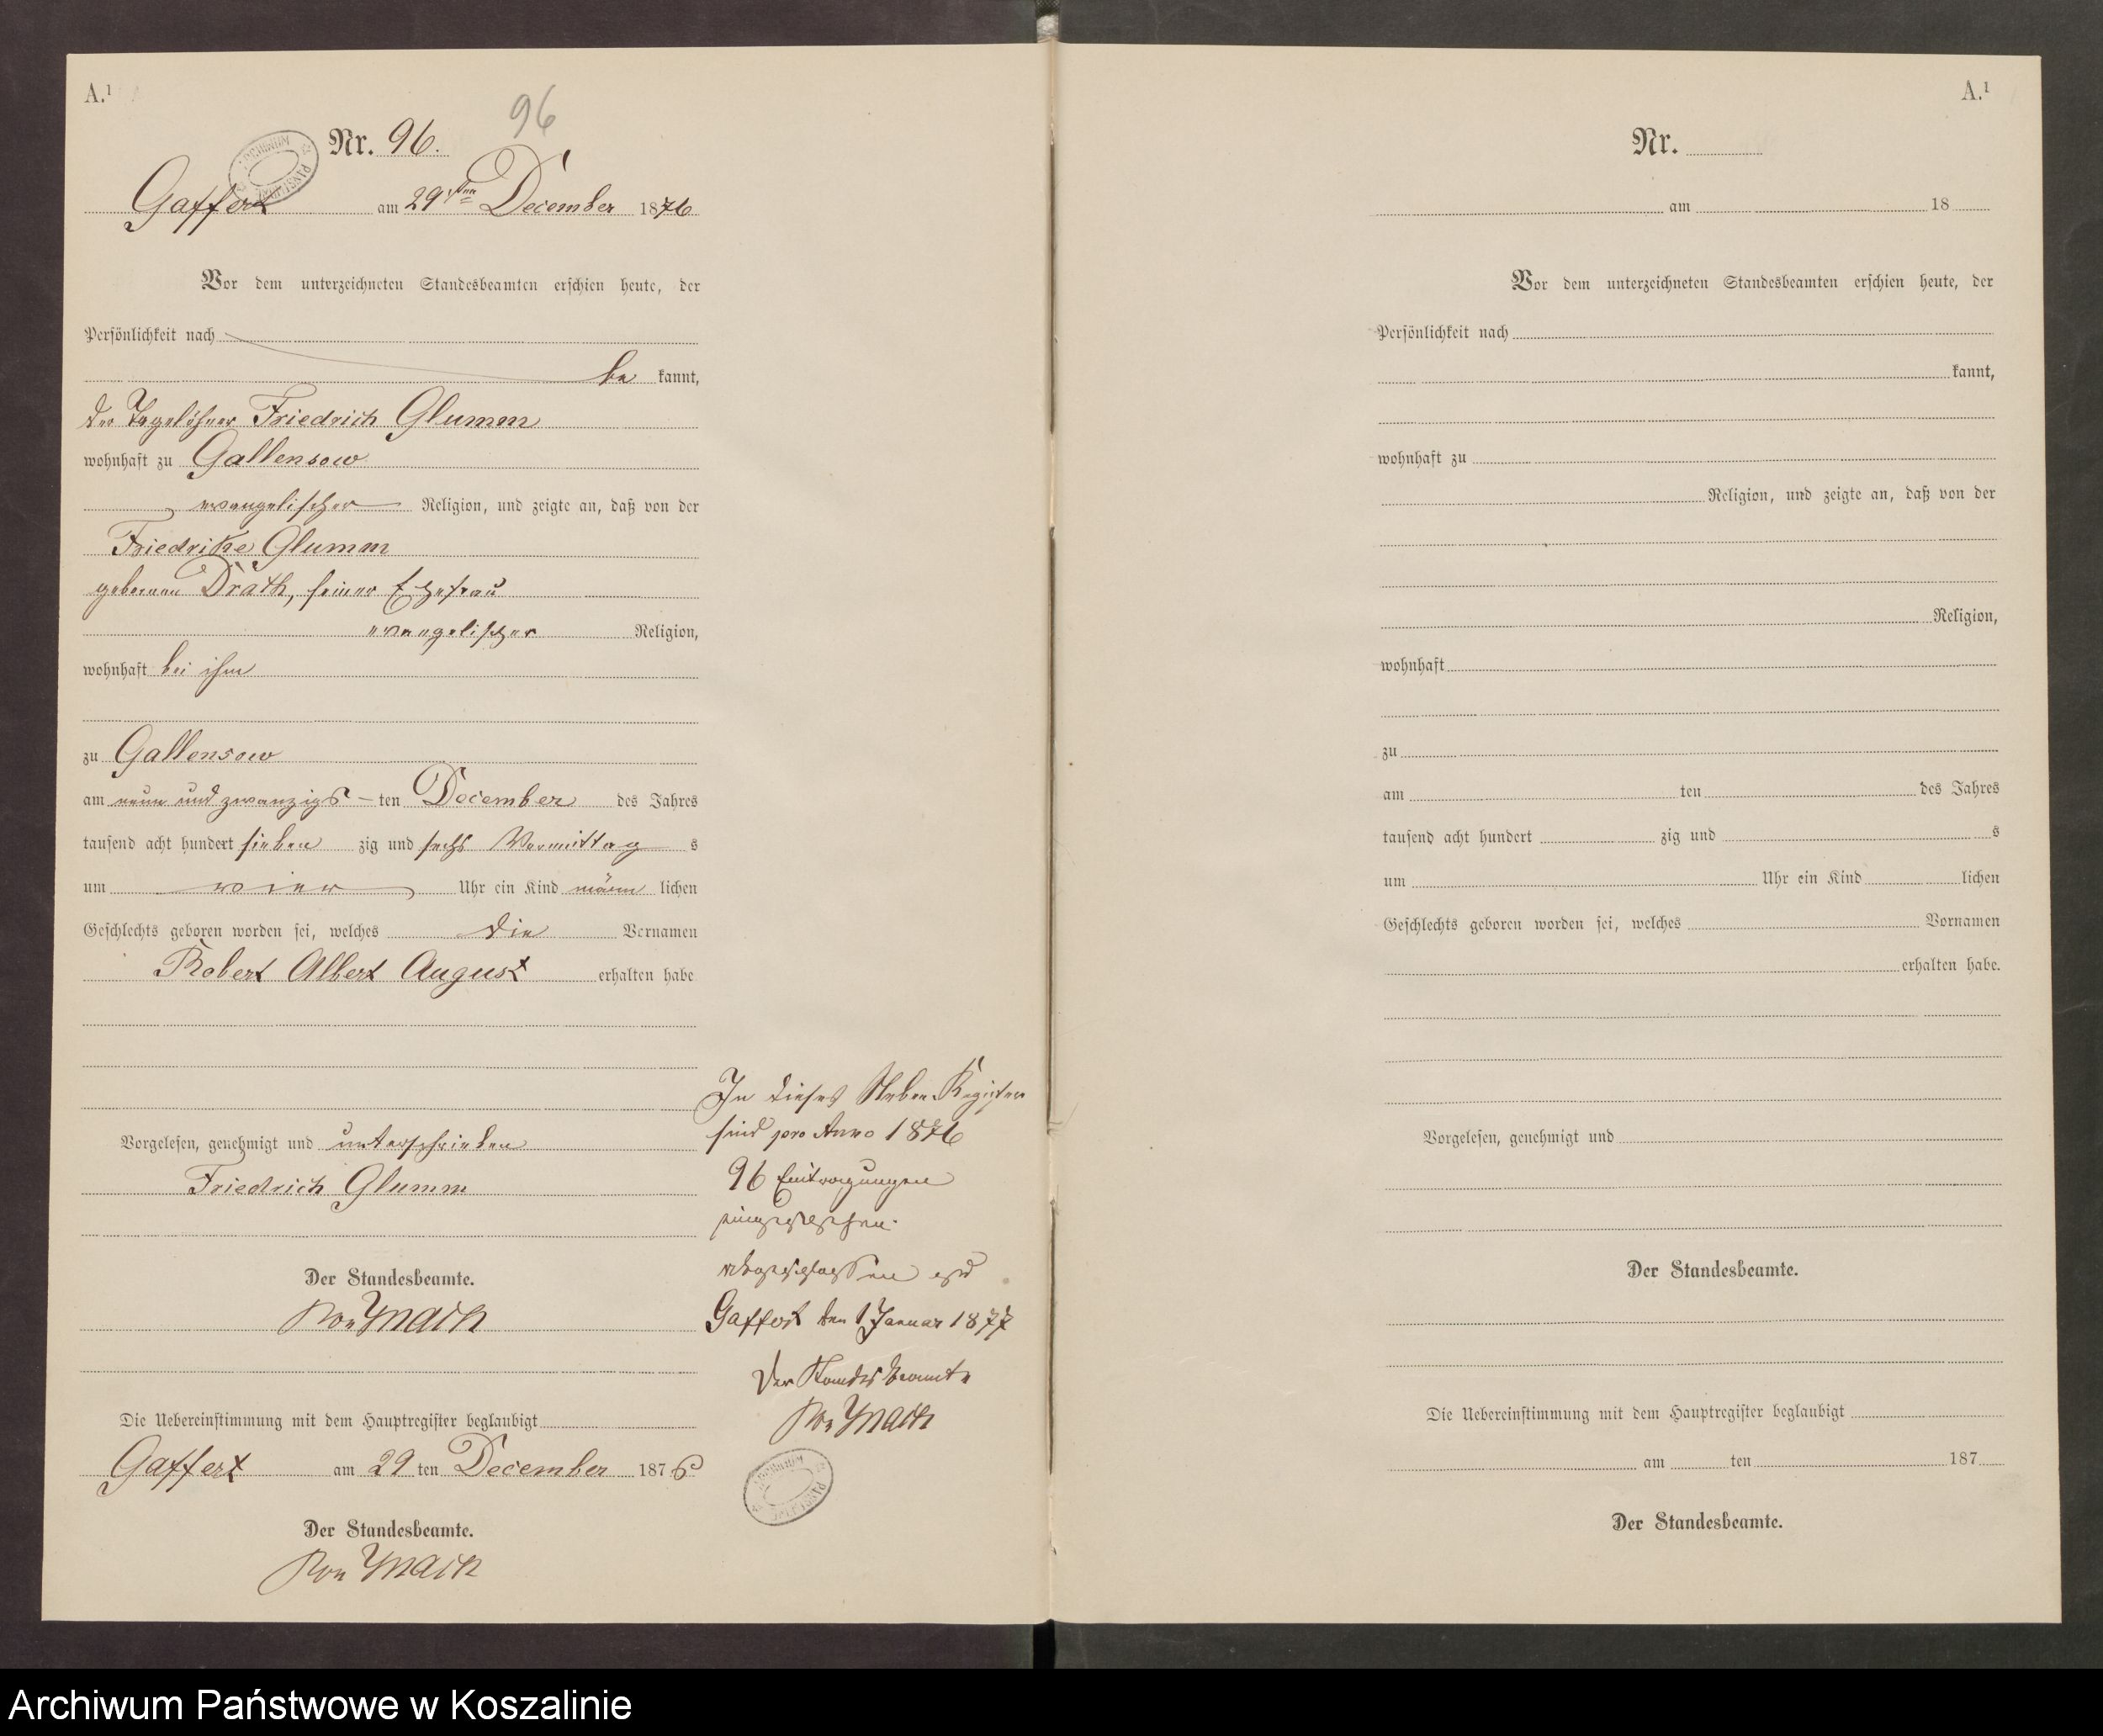 A.¹
96
Nr. 96.
Gaffert am 29ten December 1876
Vor dem unterzeichneten Standesbeamten erschien heute, der
Persönlichkeit nach
be kannt,
der Tagelöhner Friedrich Glumm
wohnhaft zu Gallensow
evangelischer Religion, und zeigte an, daß von der
Friederike Glumm
geborenen Drath, seiner Ehefrau
evangelischer Religion,
wohnhaft bei ihm
zu Gallensow
am neun und zwanzigs-ten December des Jahres
tausend acht hundert sieben zig und sechs Vormittag s
um vier Uhr ein Kind männ lichen
Geschlechts geboren worden sei, welches die Vornamen
Robert Albert August erhalten habe
Vorgelesen, genehmigt und unterschrieben
Friedrich Glumm
Der Standesbeamte.
von
Die Uebereinstimmung mit dem Hauptregister beglaubigt
Gaffert am 29 ten December 1876
Der Standesbeamte.
von
In dieses Neben Register
sind pro Anno 1876
96 Eintragungen
Gaffert den 1 Januar 1877
Der Standesbeamte
von
A.¹
Nr.
am 18
Vor dem unterzeichneten Standesbeamten erschien heute, der
Persönlichkeit nach
kannt,
wohnhaft zu
Religion, und zeigte an, daß von der
Religion,
wohnhaft
zu
am ten des Jahres
tausend acht hundert zig und s
um Uhr ein Kind lichen
Geschlechts geboren worden sei, welches Vornamen
erhalten habe.
Vorgelesen, genehmigt und
Der Standesbeamte.
Die Uebereinstimmung mit dem Hauptregister beglaubigt
am ten 187
Der Standesbeamte.
Archiwum Państwowe w Koszalinie